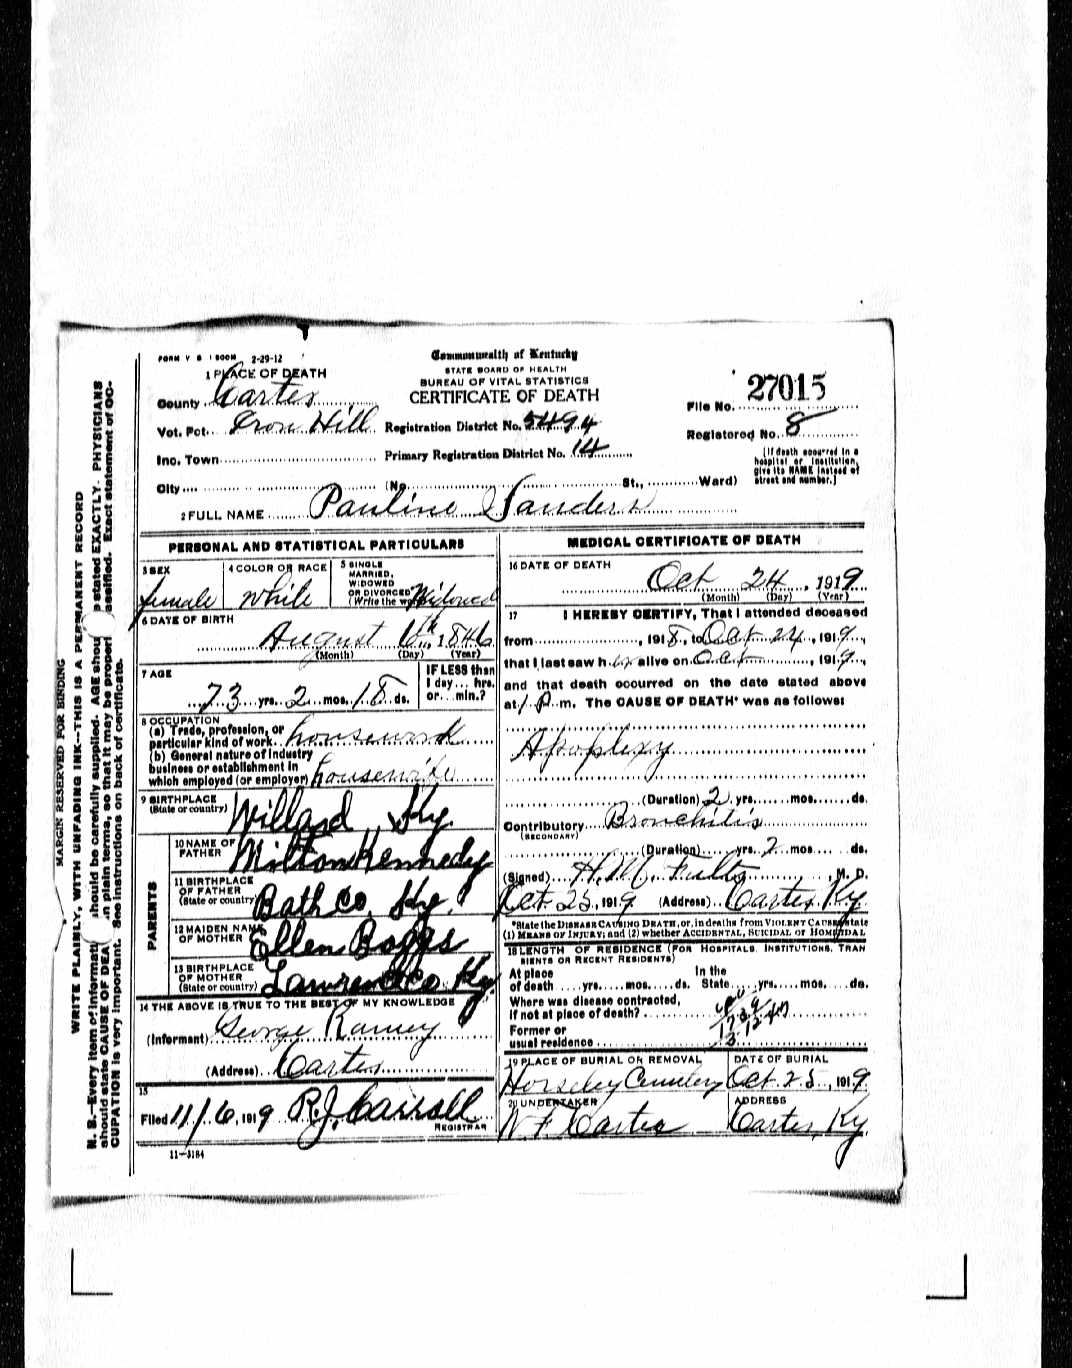 FORM V S 1 500M 2-29-12
Commonwealth of Kentucky
STATE BOARD OF HEALTH
BUREAU OF VITAL STATISTICS
CERTIFICATE OF DEATH
1 PLACE OF DEATH
County Carter
Vot. Pct. Iron Hill
Inc. Town
City
Registration District No. 5494
Primary Registration District No. 14
(No. St., Ward)
File No. 27015
Registered No. 8
[If death occurred in a
hospital or institution,
give its NAME instead of
street and number.]
2 FULL NAME Pauline Sanders
PERSONAL AND STATISTICAL PARTICULARS
3 SEX
female
4 COLOR OR RACE
white
5 SINGLE
MARRIED,
WIDOWED
OR DIVORCED
(Write the word) Widowed
6 DATE OF BIRTH
August 6th, 1846
(Month) (Day) (Year)
7 AGE
73 yrs. 2 mos. 18 ds.
IF LESS than
1 day... hrs.
or... min.?
8 OCCUPATION
(a) Trade, profession, or
particular kind of work housework
(b) General nature of industry
business or establishment in
which employed (or employer) housewife
9 BIRTHPLACE
(State or country) Willard, Ky.
PARENTS
10 NAME OF
FATHER Milton Kennedy
11 BIRTHPLACE
OF FATHER
(State or country) Bath Co, Ky.
12 MAIDEN NAME
OF MOTHER Ellen Boggs
13 BIRTHPLACE
OF MOTHER
(State or country) Lawrence Co. Ky.
14 THE ABOVE IS TRUE TO THE BEST OF MY KNOWLEDGE
(Informant) George Ramey
(Address) Carter
15
Filed 11/6, 1919 R.J. Carroll
REGISTRAR
11-3184
MEDICAL CERTIFICATE OF DEATH
16 DATE OF DEATH
Oct 24, 1919
(Month) (Day) (Year)
17 I HEREBY CERTIFY, That I attended deceased
from, 1918, to Oct 24, 1919,
that I last saw her alive on Oct, 1919,
and that death occurred on the date stated above
at 1 P.m. The CAUSE OF DEATH* was as follows:
Apoplexy
(Duration) 2 yrs. mos. ds.
Contributory Bronchitis
(SECONDARY)
(Duration) yrs. 2 mos. ds.
(Signed) H.M. , M. D.
Oct. 25, 1919 (Address) Carter Ky
*State the DISEASE CAUSING DEATH, or, in deaths from VIOLENT CAUSES, state
(1) MEANS OF INJURY; and (2) whether ACCIDENTAL, SUICIDAL or HOMICIDAL
18 LENGTH OF RESIDENCE (FOR HOSPITALS, INSTITUTIONS, TRAN
SIENTS OR RECENT RESIDENTS)
At place
of death yrs. mos. ds.
In the
State yrs. mos. ds.
Where was disease contracted,
if not at place of death?
Former or
usual residence
19 PLACE OF BURIAL OR REMOVAL
Horseley Cemetery
DATE OF BURIAL
Oct. 25, 1919
20 UNDERTAKER
N F Carter
ADDRESS
Carter, Ky
MARGIN RESERVED FOR BINDING
WRITE PLAINLY, WITH UNFADING INK—THIS IS A PERMANENT RECORD
N. B.—Every item of informati should be carefully supplied. AGE shou e stated EXACTLY. PHYSICIANS
should state CAUSE OF DEA in plain terms, so that it may be properl assified. Exact statement of OC-
CUPATION is very important. See instructions on back of certificate.